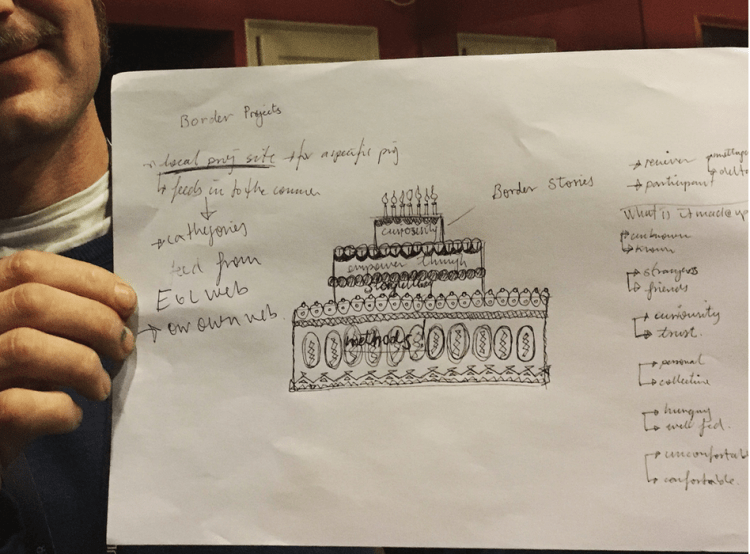 Border Projects
local proj site → for a specific proj
↳ feeds in to the
→ cathegories
feed from
EGL web
→ on own web
Border Stories
curiosity
empower through
storytelling
methods!
→ reciever
→ participant
What is it made up
→ unknown
→ known
→ strangers
→ friends
→ curiousity
→ trust.
→ personal
→ collective
→ hungry
→ well fed.
→ unconfortabl
→ confortable.